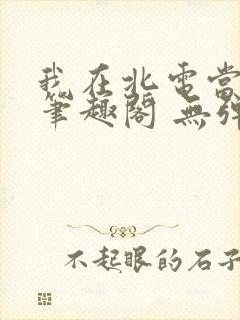 我在北電當
筆趣閣 無彈
不起眼的石子